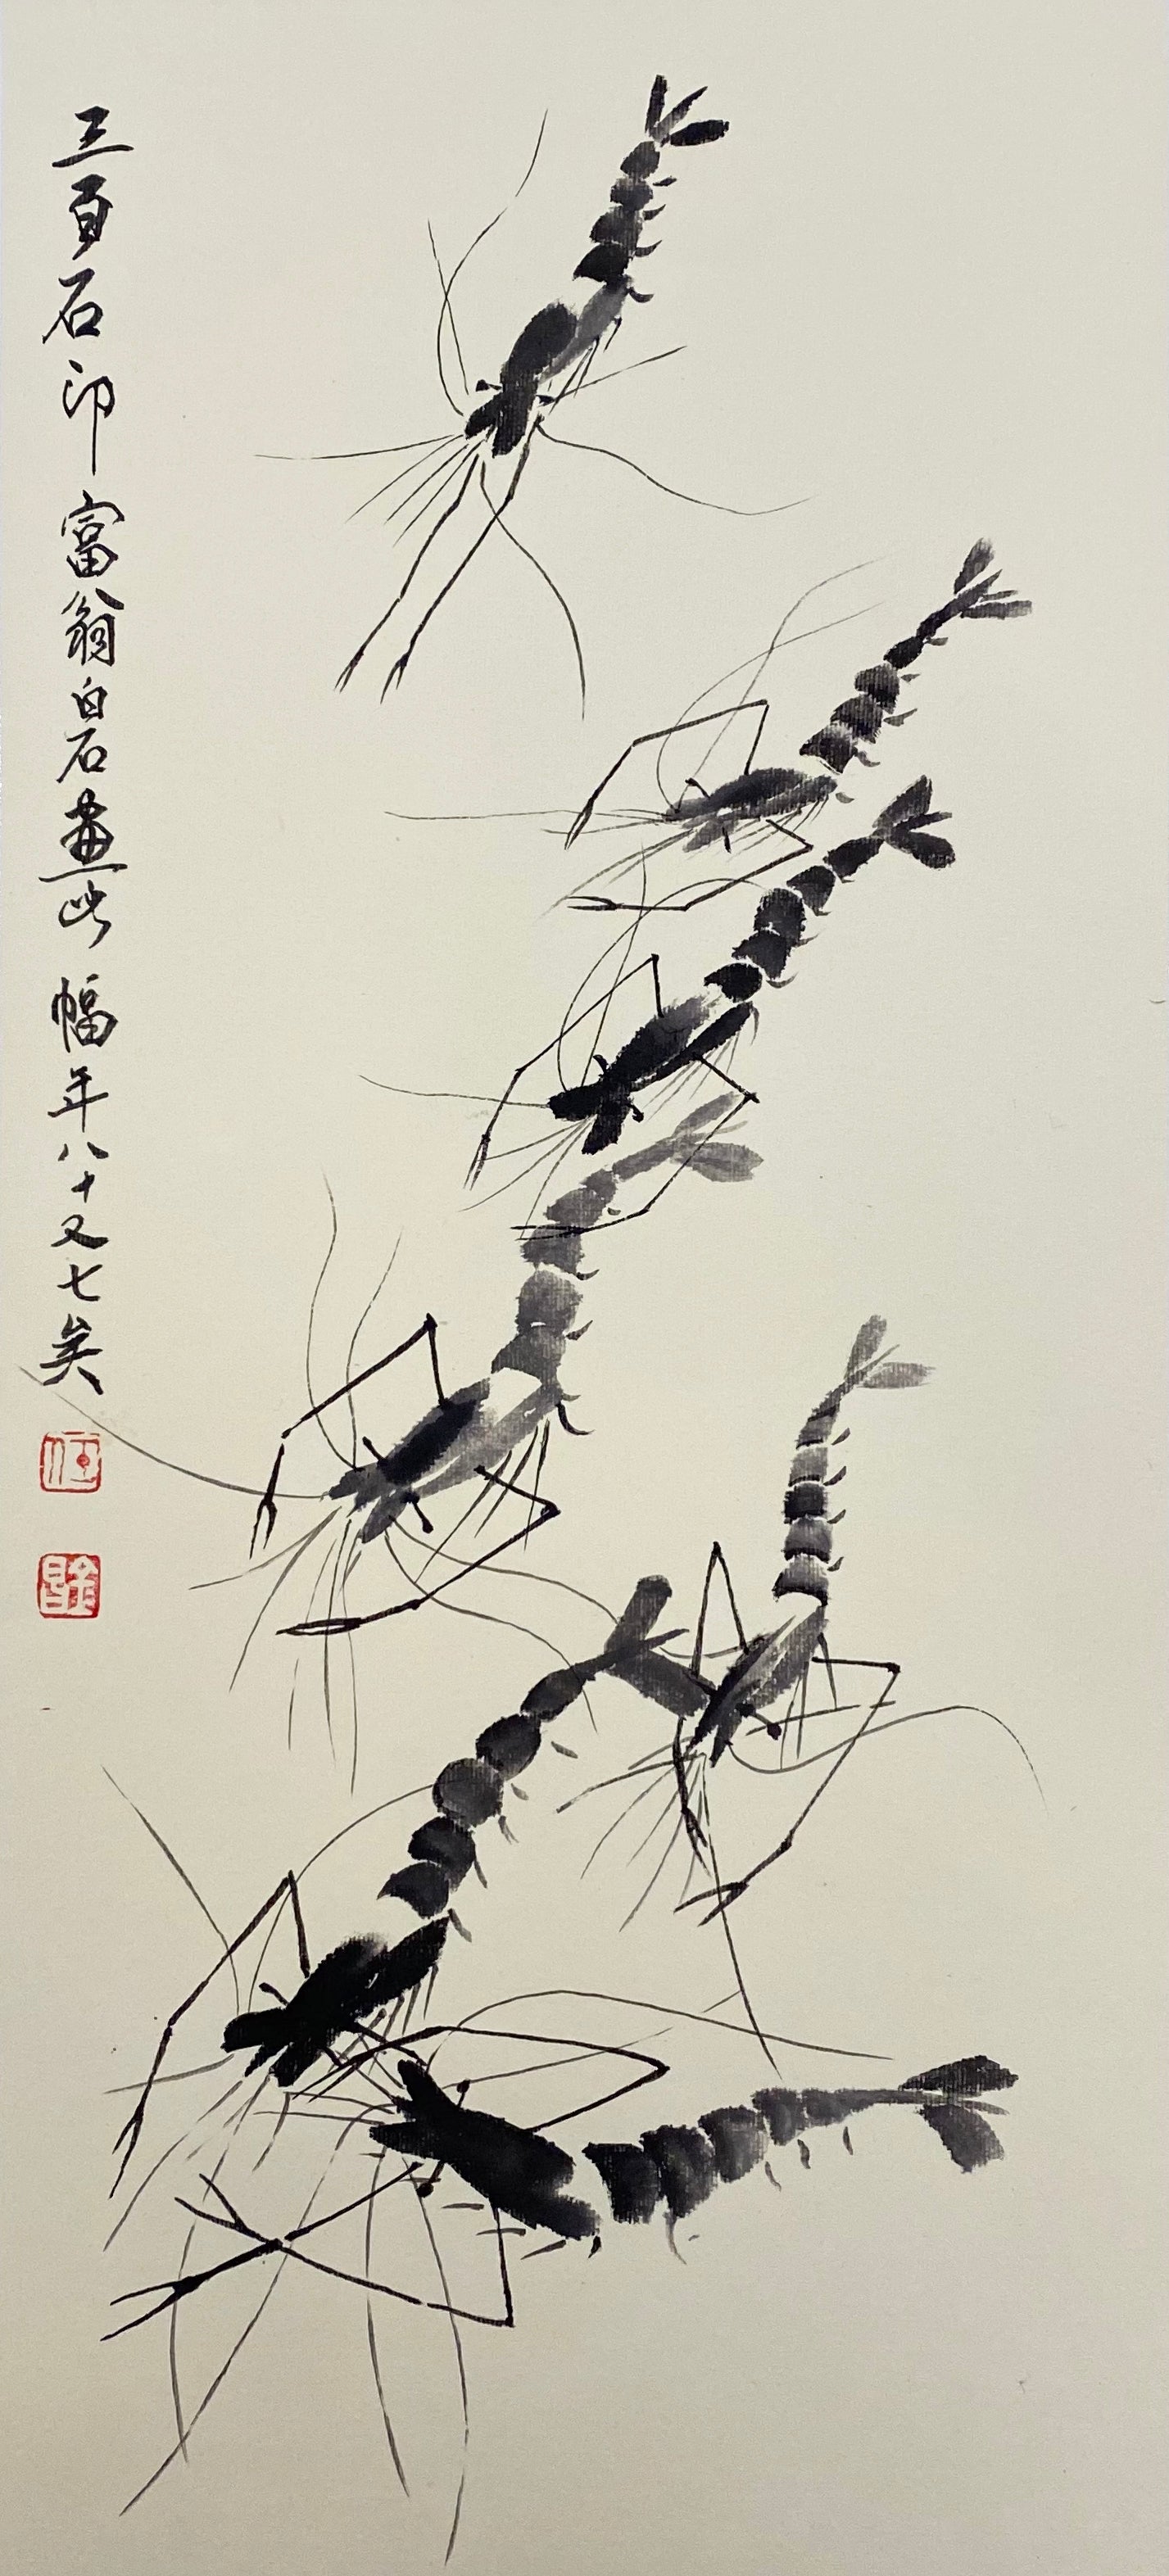 三百石印富翁白石畫此幅年八十又七矣